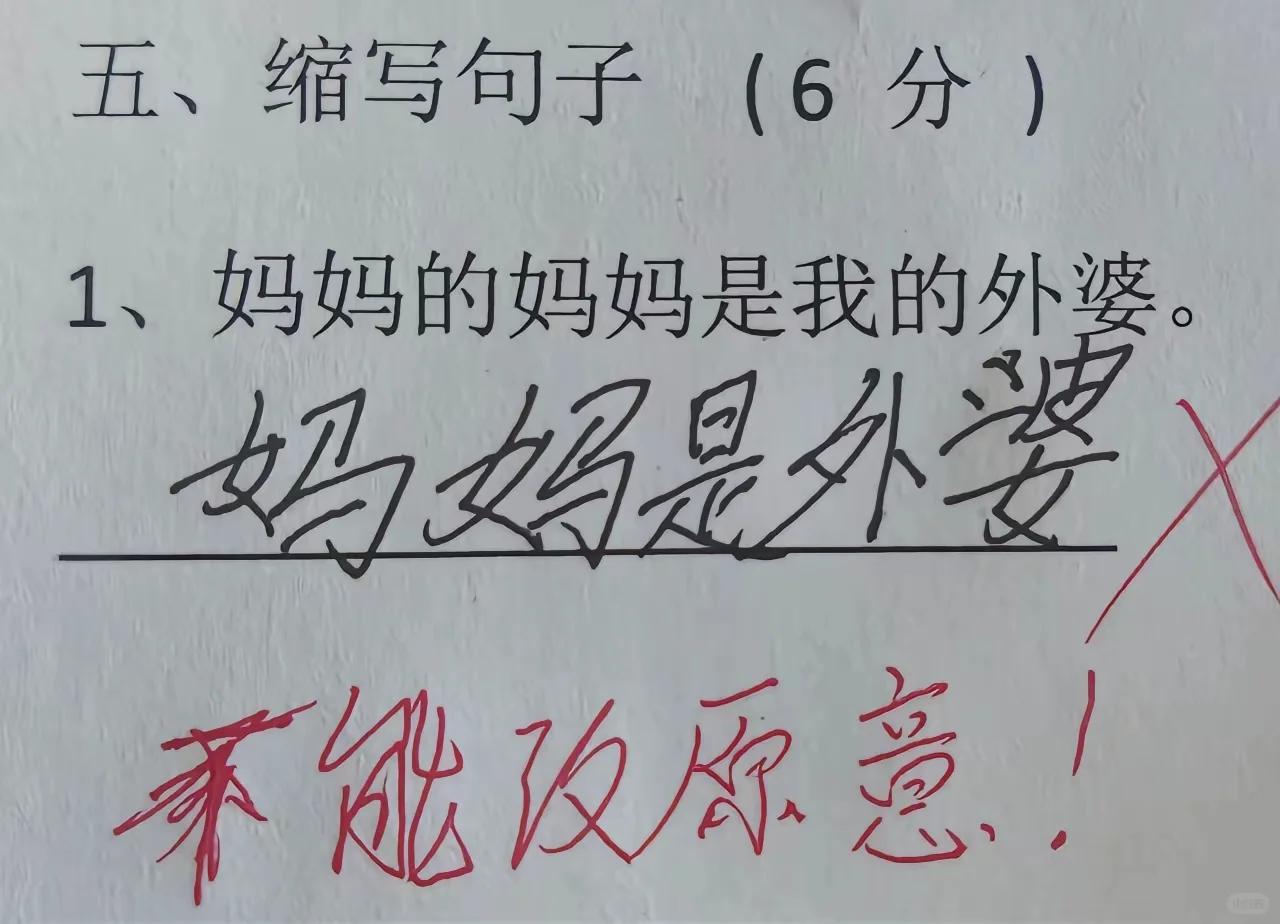 五、缩写句子 (6 分)
1、妈妈的妈妈是我的外婆。
妈妈是外婆
不能改原意!